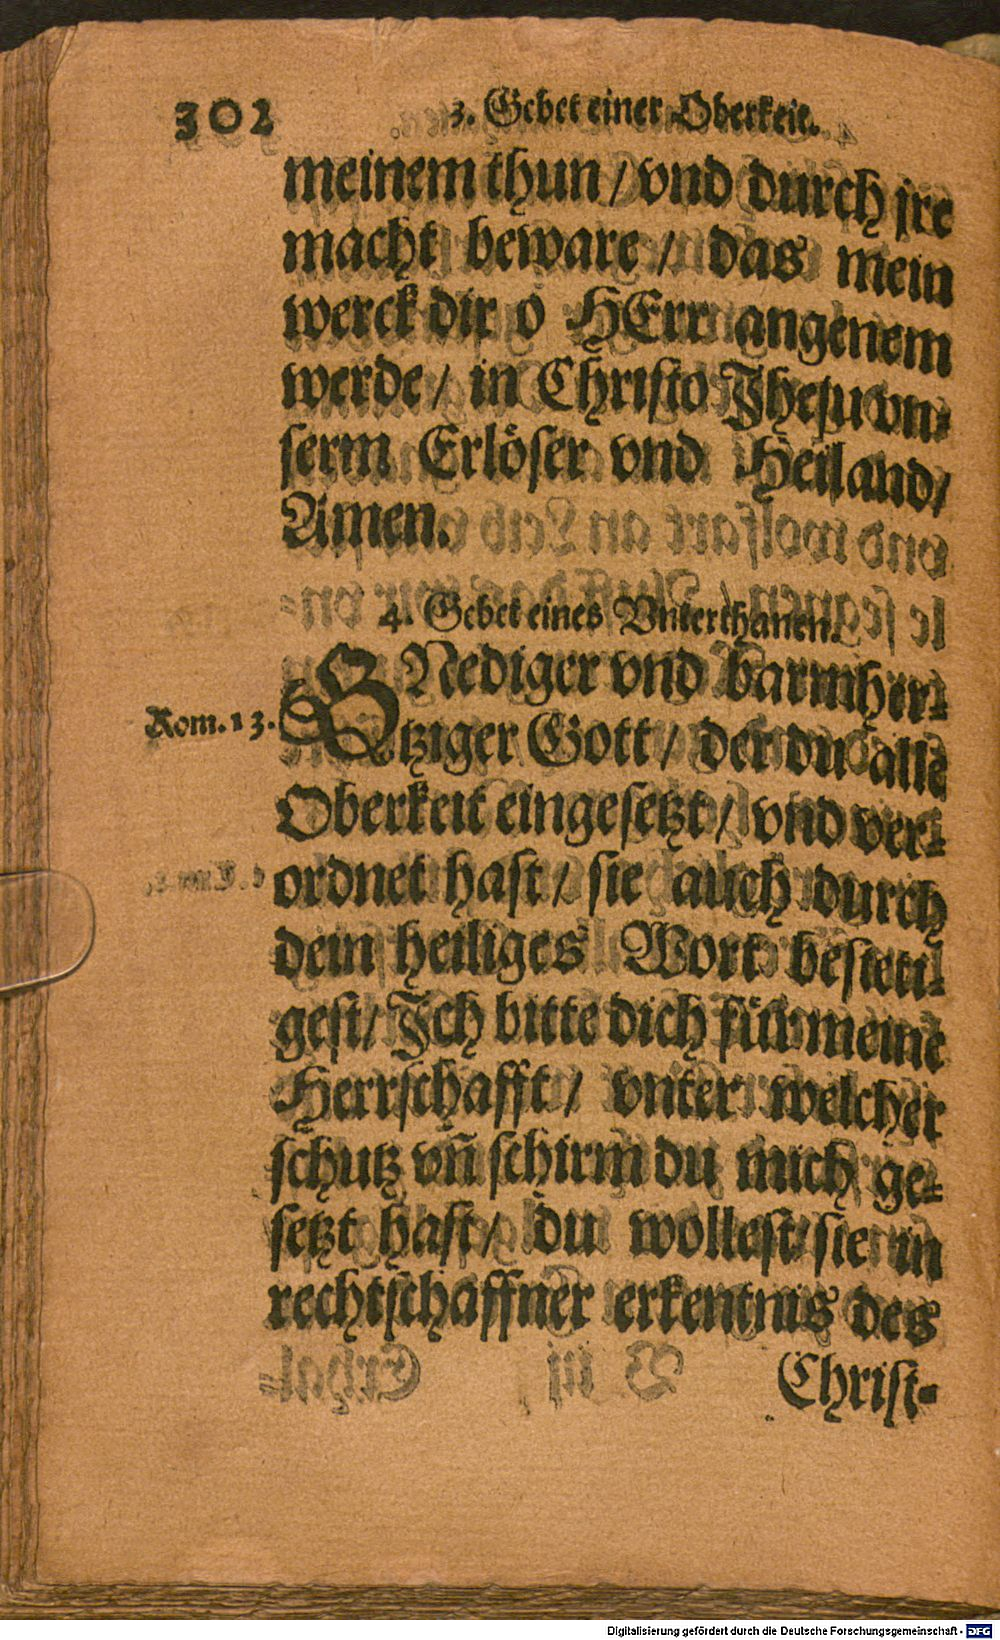 302
3. Gebet einer Oberkeit.
meinem thun / vnd durch jre
macht beware / das mein
werck dir o HErr angenem
werde / in Christo Jhesu vn-
serm Erlöser vnd Heiland /
Amen.
4. Gebet eines Vnterthanen.
GNediger vnd barmher-
Rom. 13.
tziger Gott / der du alle
Oberkeit eingesetzt / vnd ver-
ordnet hast / sie auch durch
dein heiliges Wort besteti-
gest / Jch bitte dich für meine
Herrschafft / vnter welcher
schutz vñ schirm du mich ge-
setzt hast / du wollest sie in
rechtschaffner erkentnis des
Christ-
Digitalisierung gefördert durch die Deutsche Forschungsgemeinschaft - DFG